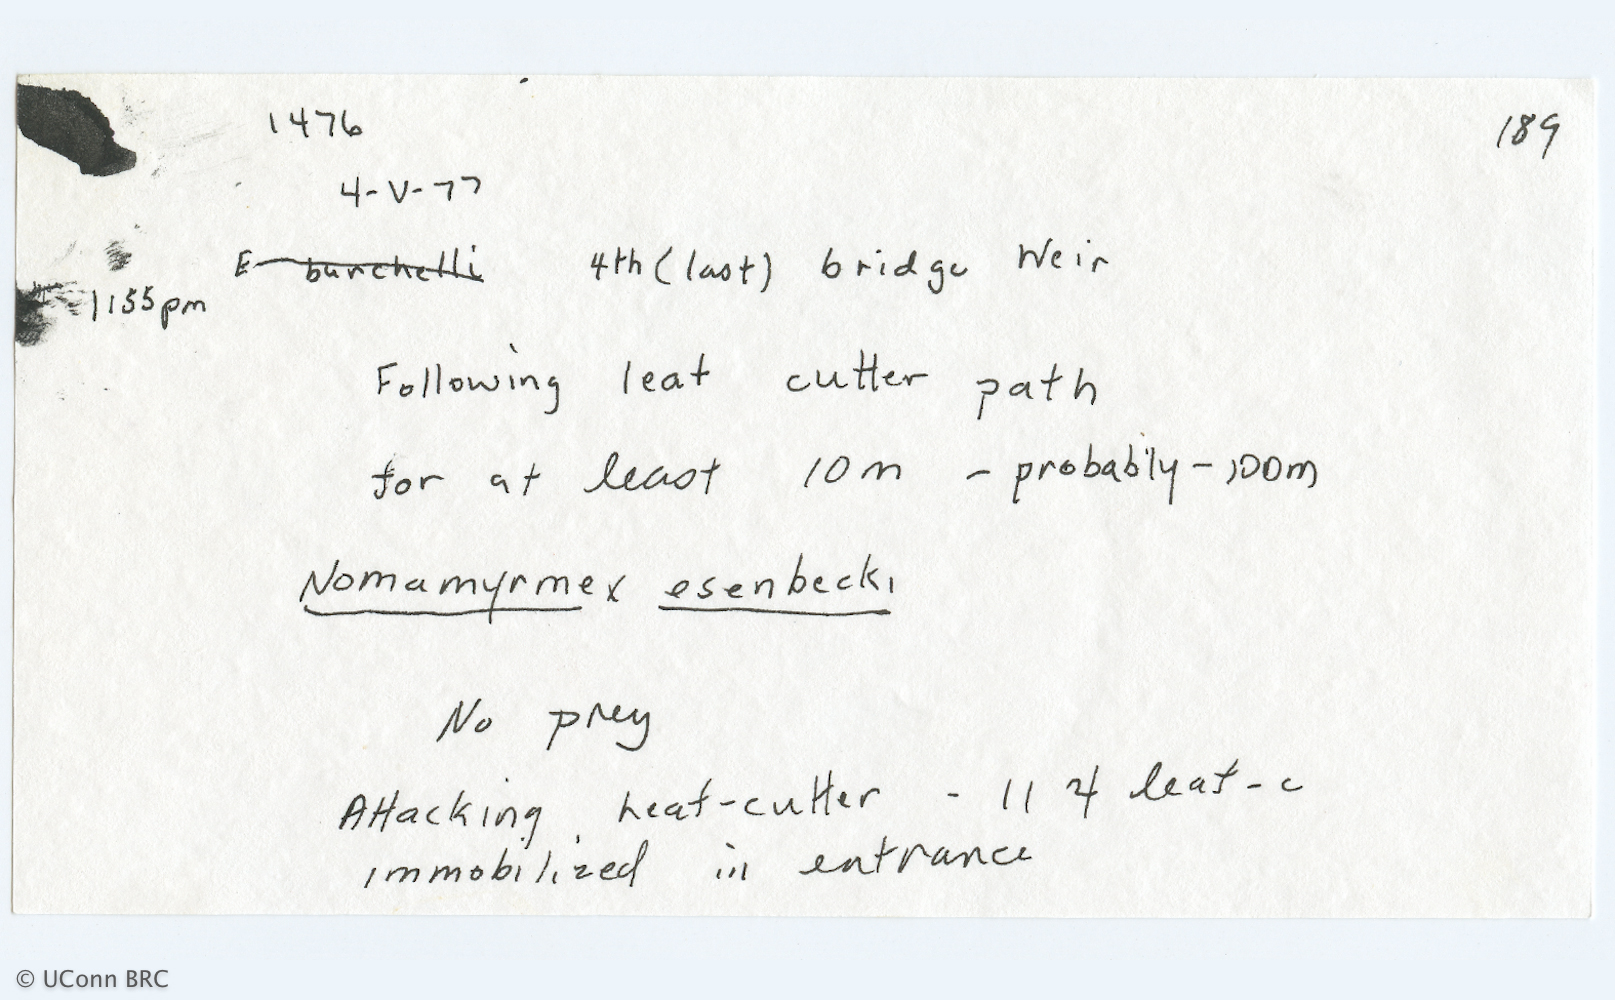 1476
189
4-V-77
E burchelli 4th (last) bridge Weir
1155pm
Following leaf cutter path
for at least 10m - probably - 100m
Nomamyrmex esenbecki
No prey
Attacking leaf-cutter - 11 leaf-c
immobilized in entrance
© UConn BRC